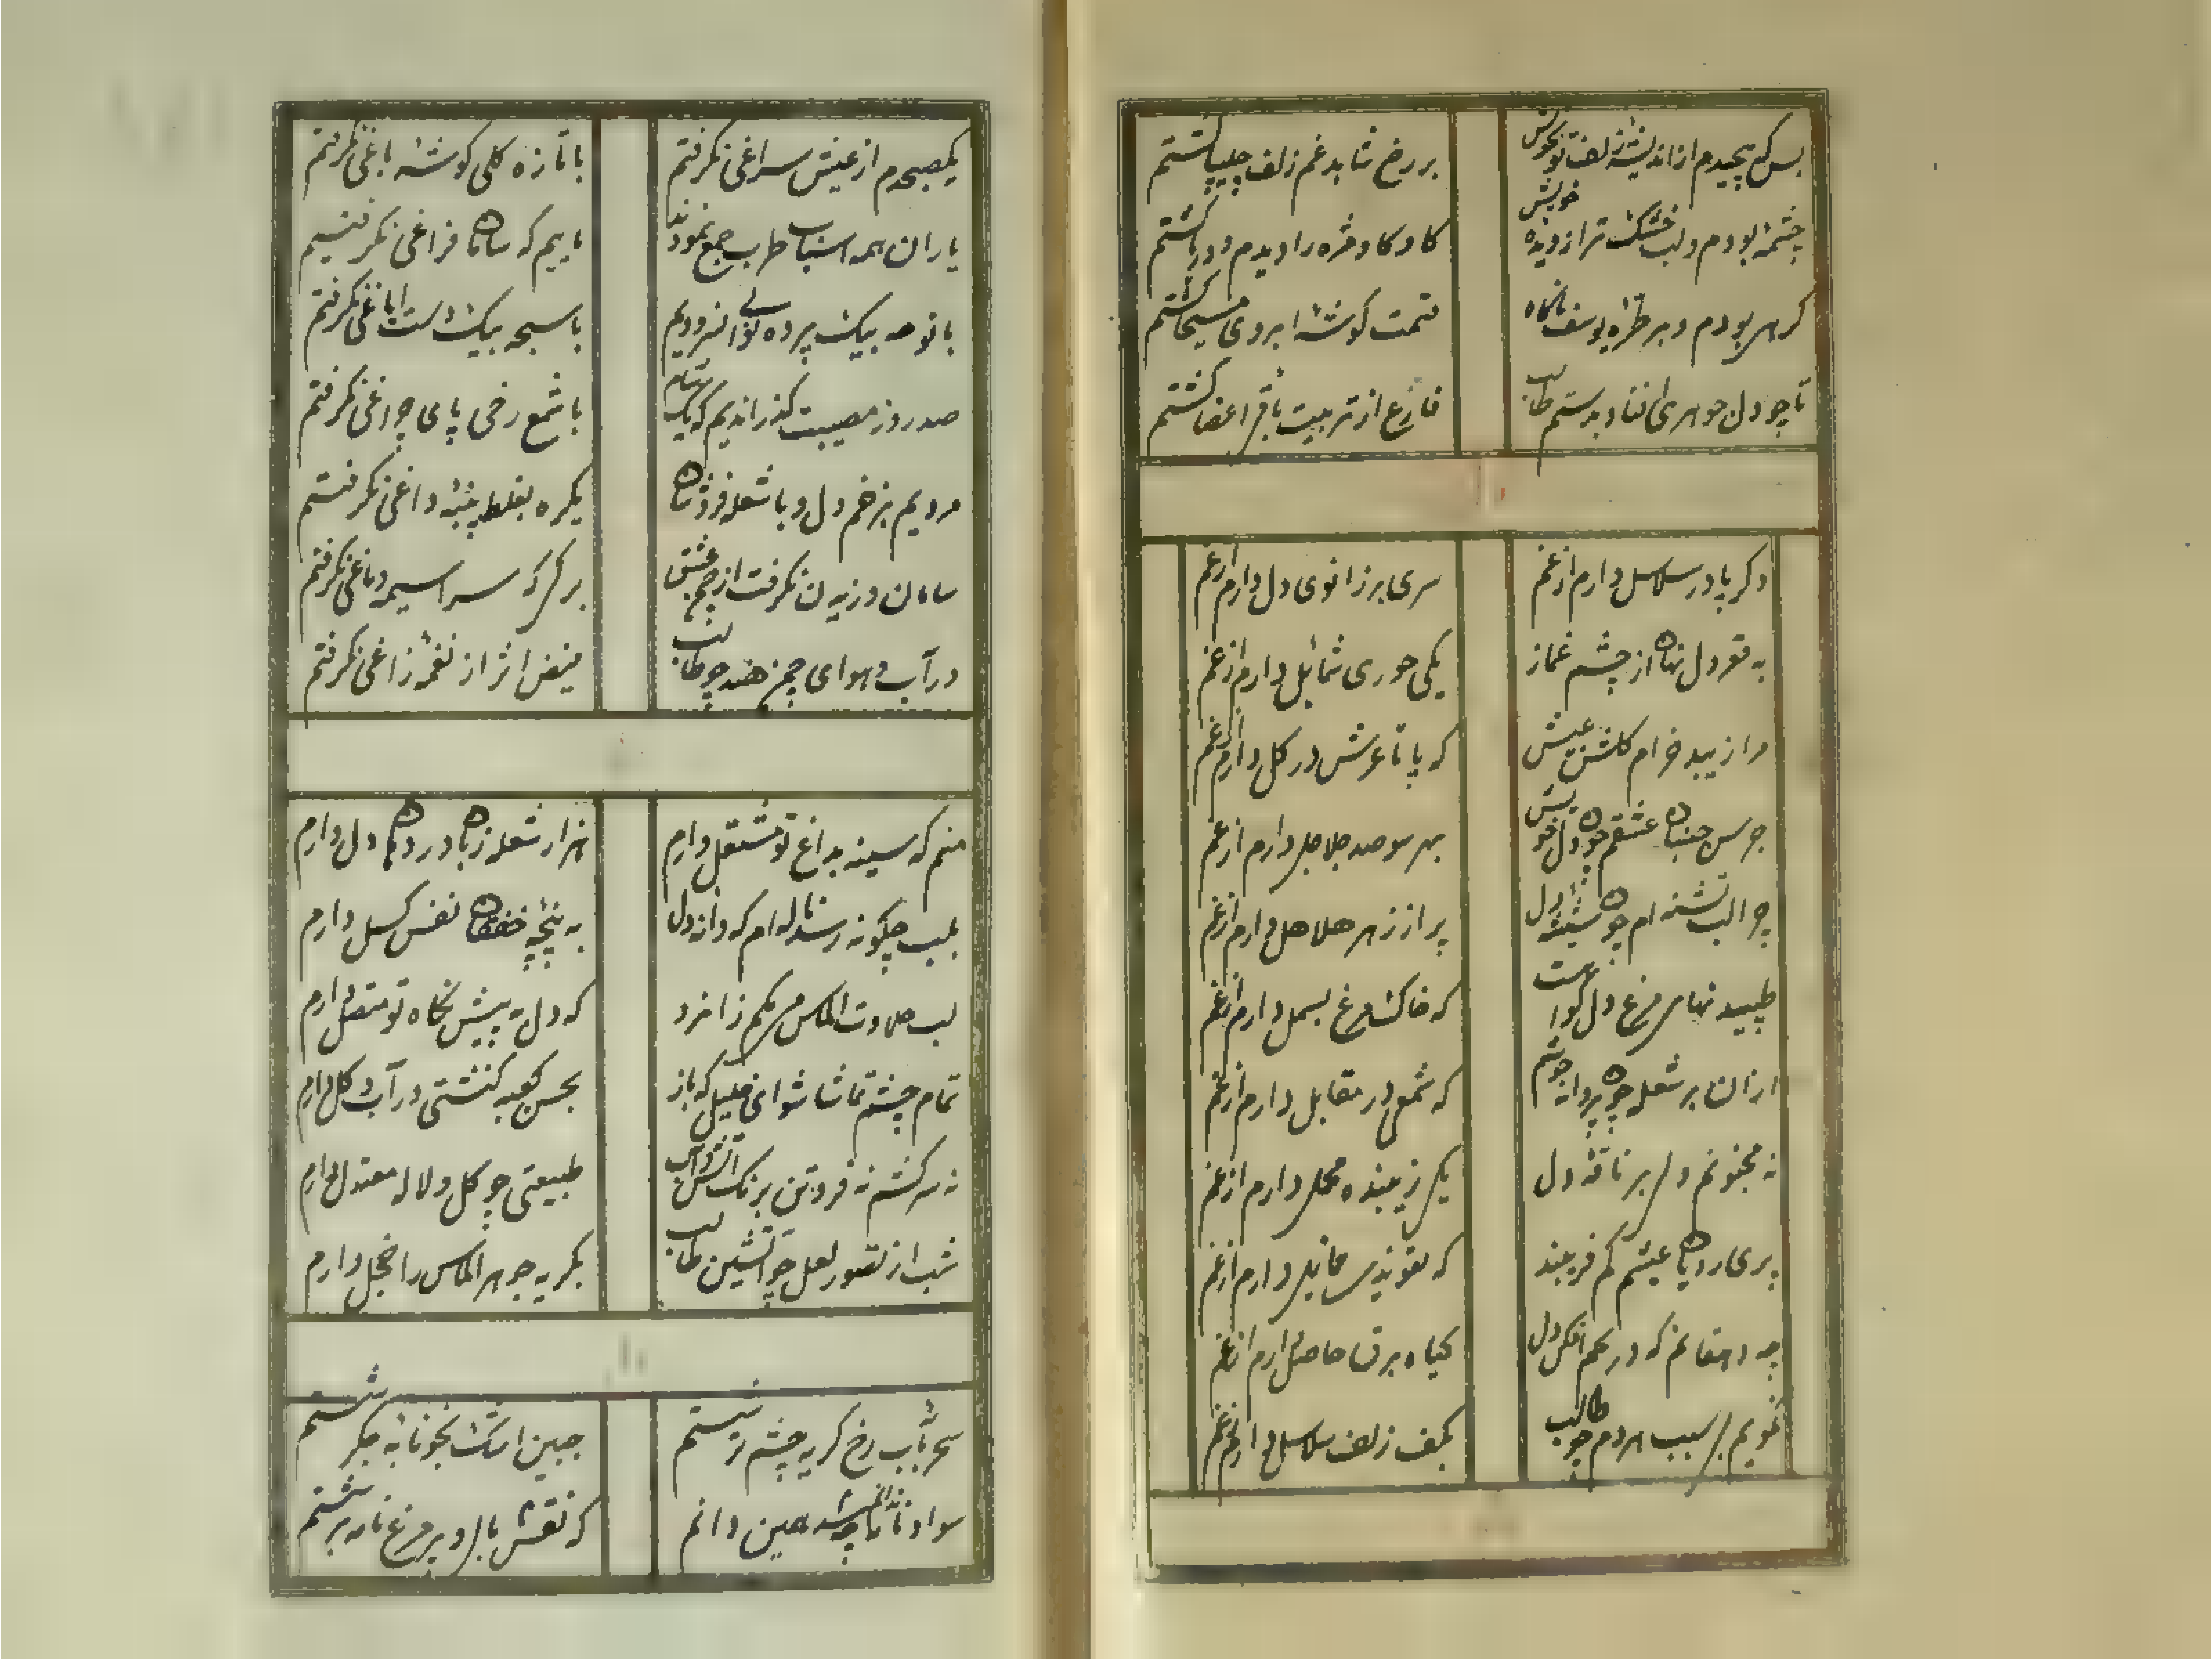 بس که پیچیدم از اندیشه زلف تو بخویش بر رخ شاهد غم زلف چلیپا گشتم
چشمه بودم و لب خشک تر از دیده خویش کاو کاو مژه را دیدم و دریا گشتم
بودم و بر طره یوسف ناگاه گوشه ابروی مسیحا گشتم
تا چو دل جوهری افتاد بدستم طالب فارغ از تربیت باقر اعضا گشتم
دگر پا در سلاسل دارم از غم سری بر زانوی دل دارم از غم
به قعر دل نهان از چشم غماز یکی حوری شمائل دارم از غم
مرا زیبد خرام گلشن عیش که پا تا عرش در گل دارم از غم
جرس جنبان عشقم چون دل خویش بهر سو صد جلاجل دارم از غم
چرا لب تشنه ام چون شیشه دل پر از زهر هلاهل دارم از غم
طپیدنهای مرغ دل گواهست که خاک مرغ بسمل دارم از غم
ازان بر شعله چون پروانه جوشم که شمعی در مقابل دارم از غم
نه مجنونم ولی بر ناقه دل یکی زیبنده محمل دارم از غم
پری رویان عیشم کم فریبند که تعویذی حمایل دارم از غم
چه دهقانم که در تخم افکن دل گیاه برق حاصل دارم از غم
نمویم بی سبب هر دم چو طالب بکف زلف سلاسل دارم از غم
یکصبحدم از عیش سراغی نگرفتم با تازه گلی گوشه باغی نگرفتم
یاران همه اسباب طرب جمع نمودند ماییم که سامان فراغی نگرفتیم
با نوحه بیک پرده نوائی نزدودیم با سبحه بیک دست ایاغی نگرفتم
صد روز مصیبت گذراندیم که یک شام با شمع رخی پای چراغی نگرفتم
مردیم بزخم دل و با شعله فروشان یکره بغلط پنبه داغی نگرفتم
سامان وزیدن نگرفت از چمن عشق بر گر که سراسیمه دماغی نگرفتم
در آب و هوای چمن هند چو طالب فیض اثر از نغمه زاغی نگرفتم
منم که سینه بداغ تو مشتعل دارم هزار شعله زبان در دهان دل دارم
بلب چگونه رسد ناله ام که دانه دل به پنجه خفقان نفس گسل دارم
لب حلاوت الماس مرهم زا مزد که دل به پیش نگاه تو متصل دارم
تمام چشم تماشا شو ای خلیل که باز بحسن کعبه کنشتی در آب و گل دارم
نه سرکشم نه فروتن برنگ آتش و آب طبیعتی چو گل و لاله معتدل دارم
شب از تصور لعل چو آتشین طالب بگریه جوهر الماس را خجل دارم
سحر بآب رخ گریه چشم تر شستم جبین اشک بخونابه جگر شستم
سواد نامه همین دانم که نقش بال و پر مرغ نامه بر شستم